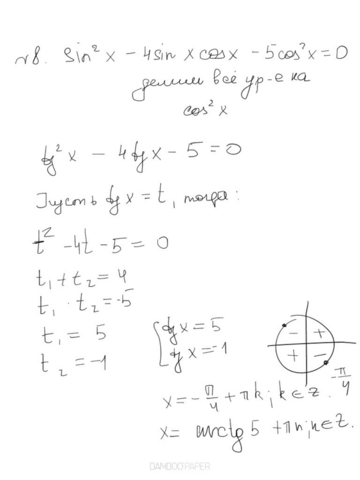 №8. sin²x - 4sin x cos x - 5cos²x = 0
делим всё ур-е на
cos²x
tg²x - 4tgx - 5 = 0
Пусть tgx = t, тогда:
t² - 4t - 5 = 0
t₁ + t₂ = 4
t₁ · t₂ = -5
t₁ = 5
t₂ = -1
tgx = 5
tgx = -1
- +
+ -
-π/4
x = -π/4 + πk; k ∈ Z.
x = arctg 5 + πn; n ∈ Z.